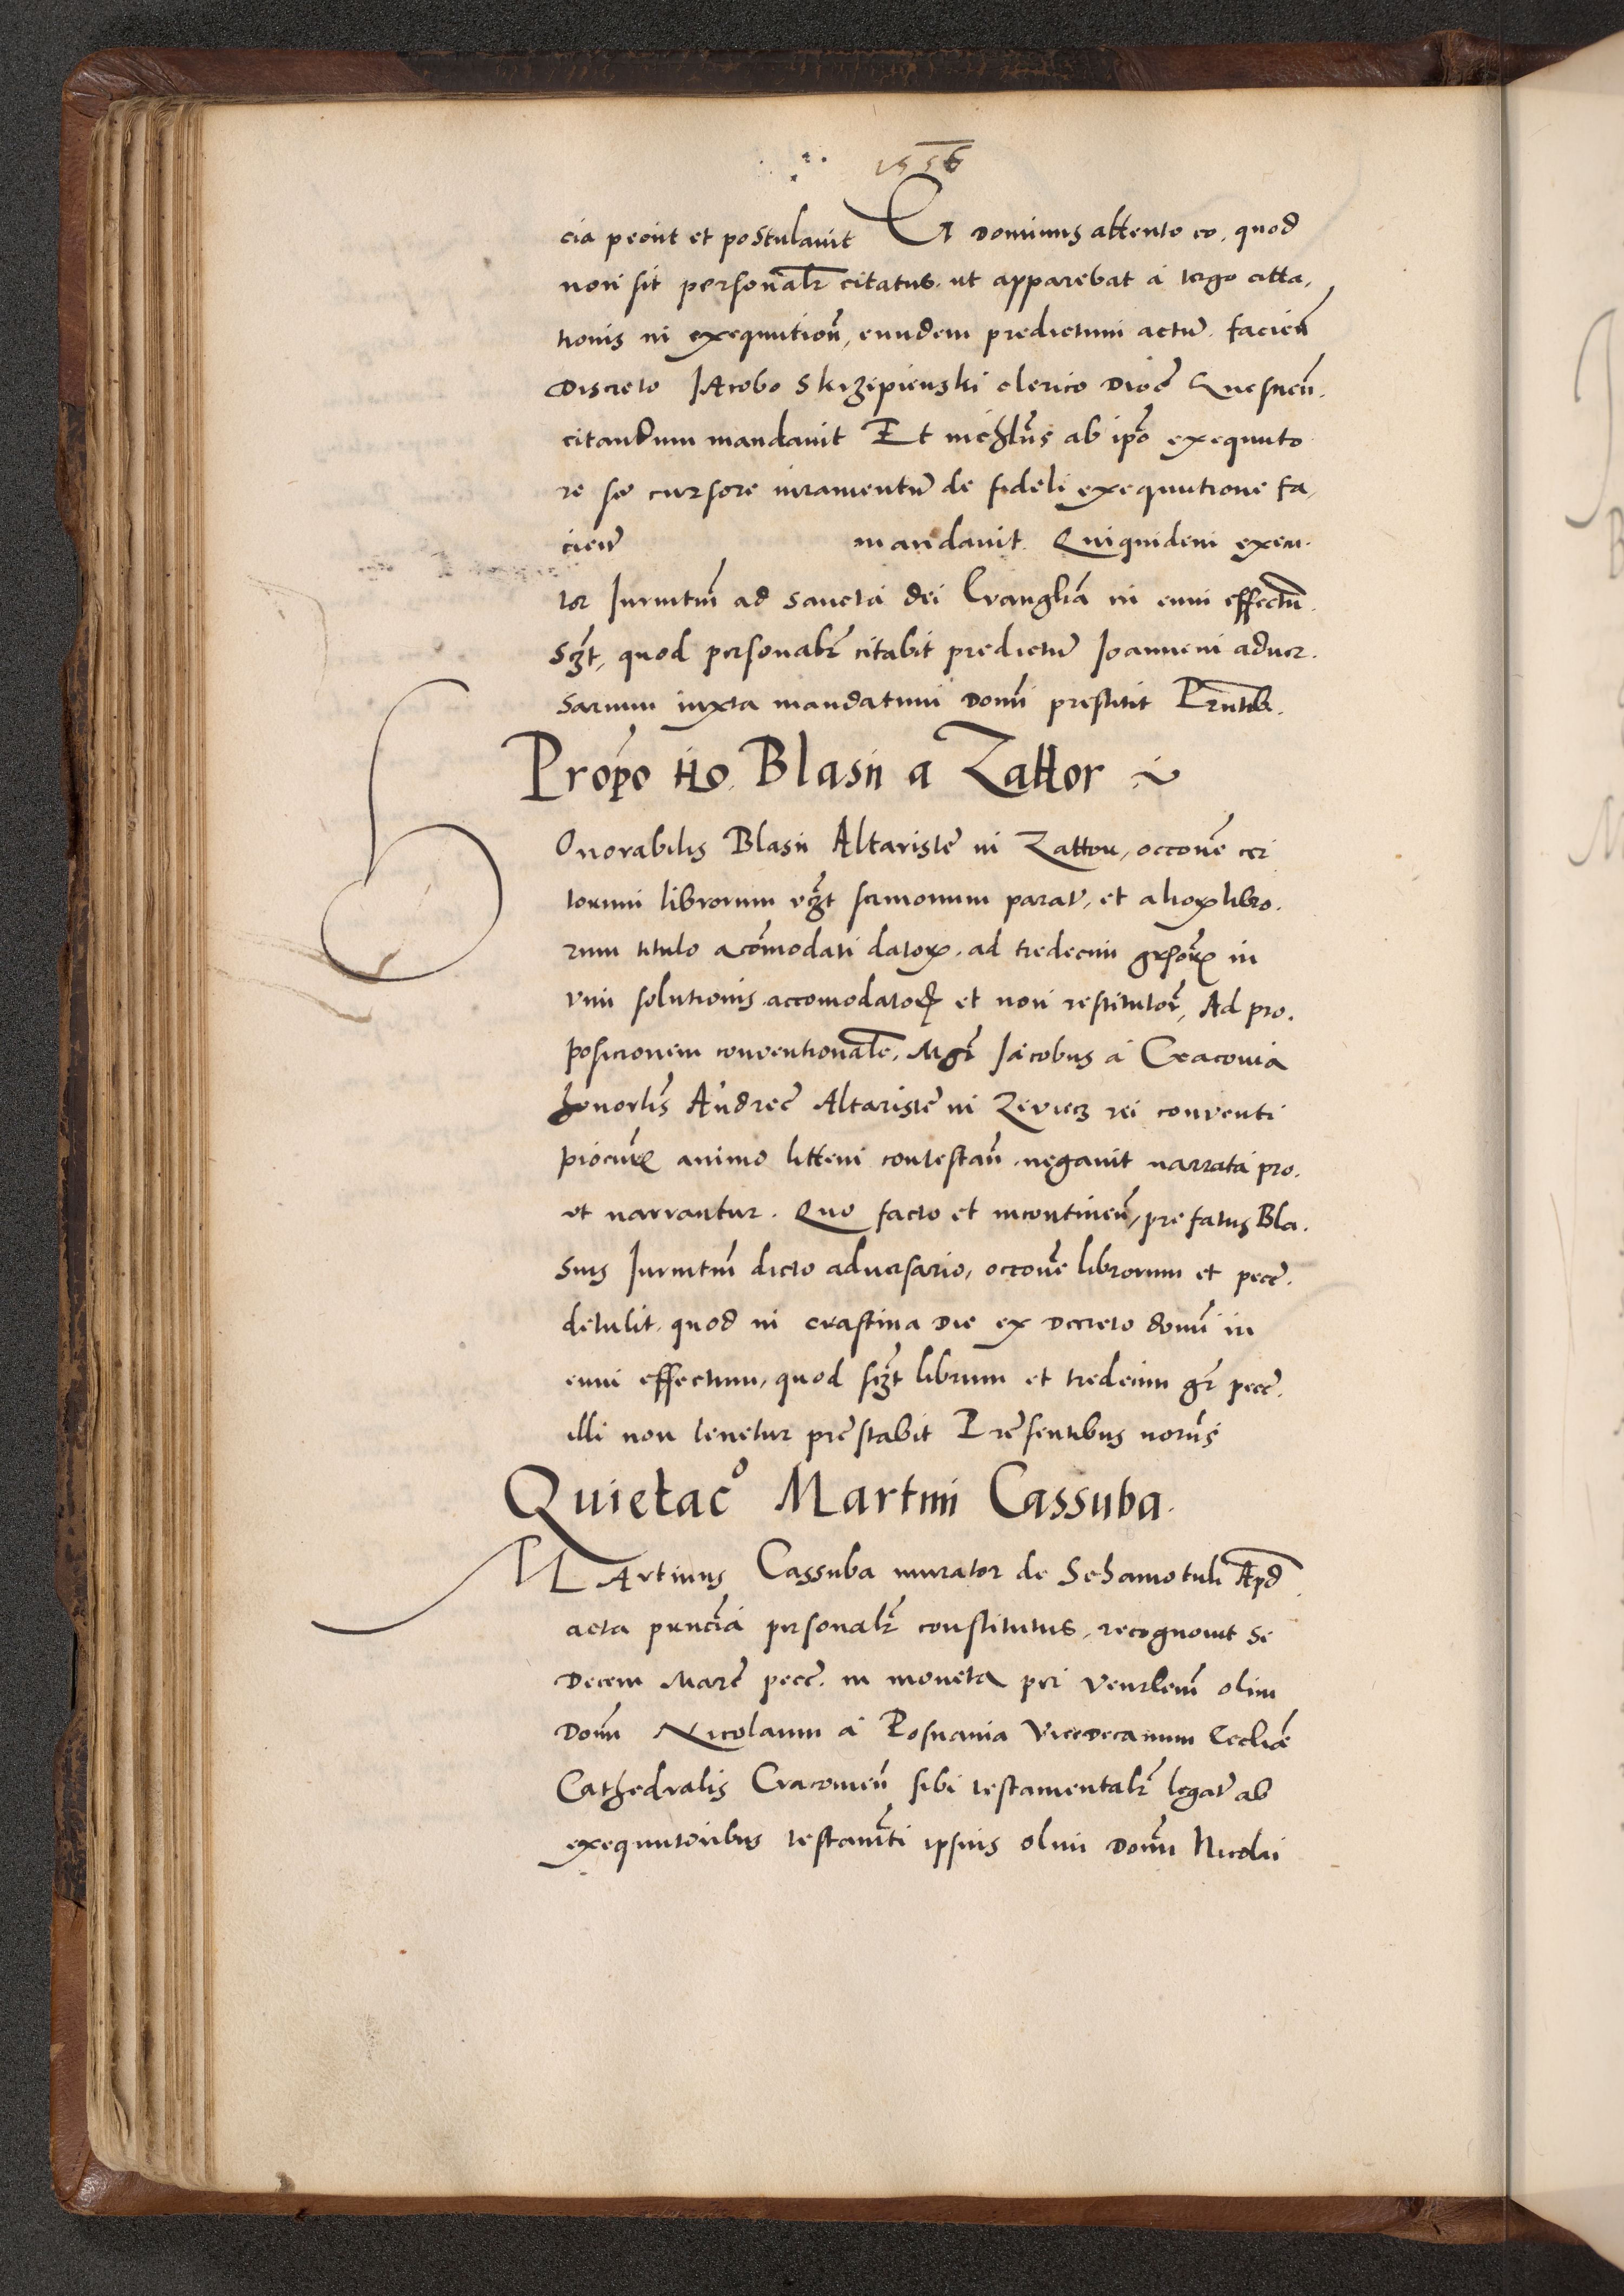 1556
cia peciit et postulavit Et Dominus attento eo, quod
non sit personalr̃ citatus, ut apparebat à tergo citta,
tionis in exequution̄, eundem predictum actum̄ facien̄
Discreto Jacobo Skrzepienski clerico Dioc̄ Gnesnen̄.
citandum mandavit Et nichl̄us ab ip̄o exequuto
re seu cursore iuramentum̄ de fideli exequutione fa,
cien̄ mandavit. Quiquidem execu-
tor Juramtm̄ ad sancta dei Evanglia in eum effectum̄.
Sczt, quod personalr̃ citabit predictum̄ Joannem adver-
sarium iuxta mandatum Domi prestitit Pn̄tib.
Propo tio Blasii a Zattor
Honorabilis Blasii Altariste in Zattor, occone cer
torum librorum vczt sermonum parat, et aliorꝝ libro-
rum titulo acomodati datorꝝ, ad tredecim grossorꝝ in
vim solutionis accomodatorꝝ et non restitutorꝝ, Ad pro-
posicionem conventionale, Mgr̄ Jacobus à Cracovia
honorlis Andree Altariste in Zeviecz rei conventi
procurꝝ animo littem contestan̄ negavit narrata pro-
ut narrantur. Quo facto et incontinen̄, prefatus Bla-
sius Juramtm̄ dicto adversario, occone librorum et pecc̄.
detulit, quod in crastina Die ex Decreto domi in
eum effectum, quod sczt librum et tredecim gr̄ pecc̄.
illi non tenetur prestabit Presentibus
Quietac̊ Martini Cassuba.
Martinus Cassuba murator de Schamotuli Apd
acta pnn̄cia personalr̃ constitutus, recognovit se
Decem Marc̄ pecc̄. in moneta per Venrlem olim
Domn̄ Nicolaum à Posnania Vicedecanum Ecclie
Cathedralis Cracovien̄ sibi testamentalr̃ legat ab
exequutoribus testamti ipsius olim Domni Nicolai